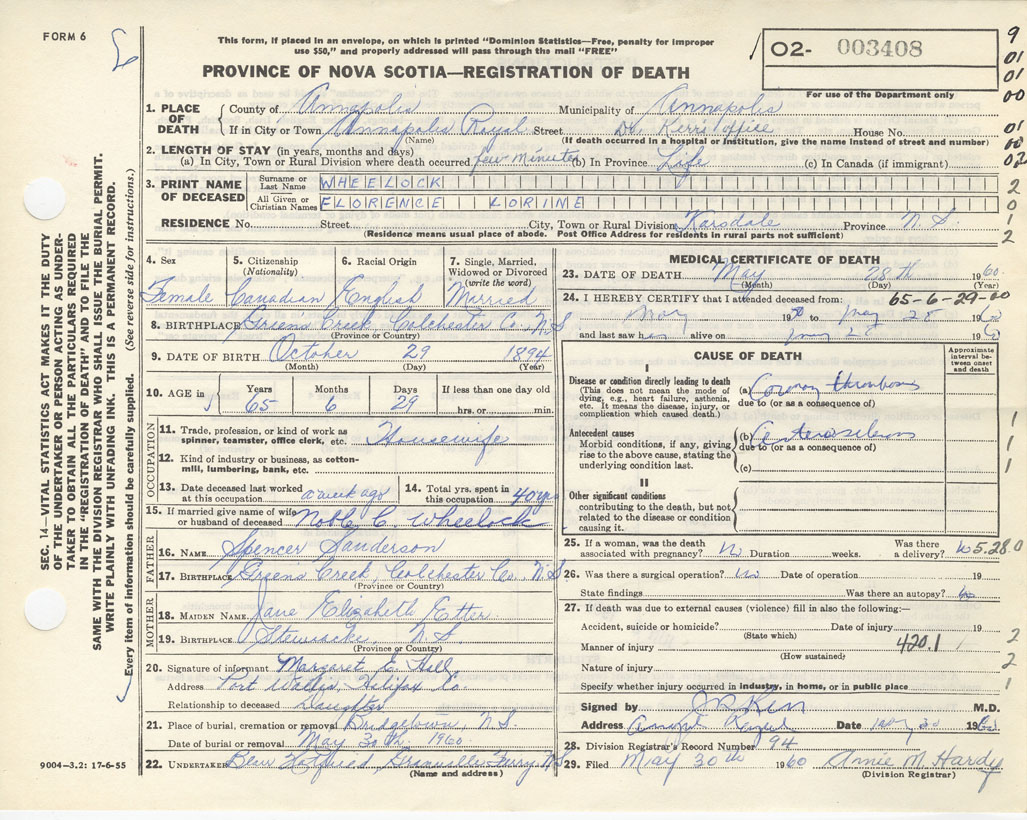 FORM 6
This form, if placed in an envelope, on which is printed "Dominion Statistics—Free, penalty for improper
use $50," and properly addressed will pass through the mail "FREE"
PROVINCE OF NOVA SCOTIA—REGISTRATION OF DEATH
02- 003408
For use of the Department only
9
01
01
00
01
00
02
2
0
1
2
1. PLACE OF DEATH
County of Annapolis Municipality of Annapolis
If in City or Town Annapolis Royal Street Dr. Kerr's office House No.
(Name) (If death occurred in a hospital or institution, give the name instead of street and number)
2. LENGTH OF STAY (in years, months and days)
(a) In City, Town or Rural Division where death occurred few minutes (b) In Province Life (c) In Canada (if immigrant)
3. PRINT NAME OF DECEASED
Surname or Last Name WHEELOCK
All Given or Christian Names FLORENCE LORIME
RESIDENCE No. Street City, Town or Rural Division Karsdale Province N.S.
(Residence means usual place of abode. Post Office Address for residents in rural parts not sufficient)
4. Sex
Female
5. Citizenship
(Nationality)
Canadian
6. Racial Origin
English
7. Single, Married,
Widowed or Divorced
(write the word)
Married
8. BIRTHPLACE Greens Creek, Colchester Co. N.S
(Province or Country)
9. DATE OF BIRTH October 29 1894
(Month) (Day) (Year)
10. AGE in Years Months Days If less than one day old
65 6 29 hrs. or min.
OCCUPATION
11. Trade, profession, or kind of work as
spinner, teamster, office clerk, etc. Housewife
12. Kind of industry or business, as cotton-
mill, lumbering, bank, etc.
13. Date deceased last worked
at this occupation a week ago
14. Total yrs. spent in
this occupation 40 yrs
15. If married give name of wife
or husband of deceased Noble C. Wheelock
FATHER
16. NAME Spencer Sanderson
17. BIRTHPLACE Greens Creek, Colchester Co. N.S
(Province or Country)
MOTHER
18. MAIDEN NAME Jane Elizabeth Etter
19. BIRTHPLACE Stewiacke, N.S
(Province or Country)
20. Signature of informant Margaret E. Hall
Address Port Wallis, Halifax Co.
Relationship to deceased Daughter
21. Place of burial, cremation or removal Bridgetown, N.S.
Date of burial or removal May 30th 1960
22. UNDERTAKER Granville Ferry N.S
(Name and address)
MEDICAL CERTIFICATE OF DEATH
23. DATE OF DEATH May 28th 1960
(Month) (Day) (Year)
24. I HEREBY CERTIFY that I attended deceased from: 65-6-29-00
May 19 to May 28 19
and last saw h alive on 19
CAUSE OF DEATH
Approximate
interval be-
tween onset
and death
I
Disease or condition directly leading to death
(This does not mean the mode of
dying, e.g., heart failure, asthenia,
etc. It means the disease, injury, or
complication which caused death.)
(a) Coronary thrombosis
due to (or as a consequence of)
Antecedent causes
Morbid conditions, if any, giving
rise to the above cause, stating the
underlying condition last.
(b) Arteriosclerosis
due to (or as a consequence of)
(c)
1
1
1
II
Other significant conditions
contributing to the death, but not
related to the disease or condition
causing it.
25. If a woman, was the death Was there
associated with pregnancy? No Duration weeks. a delivery? 5.28.0
26. Was there a surgical operation? No Date of operation 19
State findings Was there an autopsy? No
27. If death was due to external causes (violence) fill in also the following:—
Accident, suicide or homicide? Date of injury 19 2
(State which)
Manner of injury 420.1
(How sustained) 2
Nature of injury
Specify whether injury occurred in industry, in home, or in public place 1
Signed by Kerr M.D.
Address Annapolis Royal Date May 30 1960
28. Division Registrar's Record Number 94
29. Filed May 30th 1960 Annie M. Hardy
(Division Registrar)
SEC. 14—VITAL STATISTICS ACT MAKES IT THE DUTY
OF THE UNDERTAKER OR PERSON ACTING AS UNDER-
TAKER TO OBTAIN ALL THE PARTICULARS REQUIRED
IN THE "REGISTRATION OF DEATH" AND TO FILE THE
SAME WITH THE DIVISION REGISTRAR WHO SHALL ISSUE THE BURIAL PERMIT.
WRITE PLAINLY WITH UNFADING INK. THIS IS A PERMANENT RECORD.
Every item of information should be carefully supplied. (See reverse side for instructions.)
9004-3.2: 17-6-55